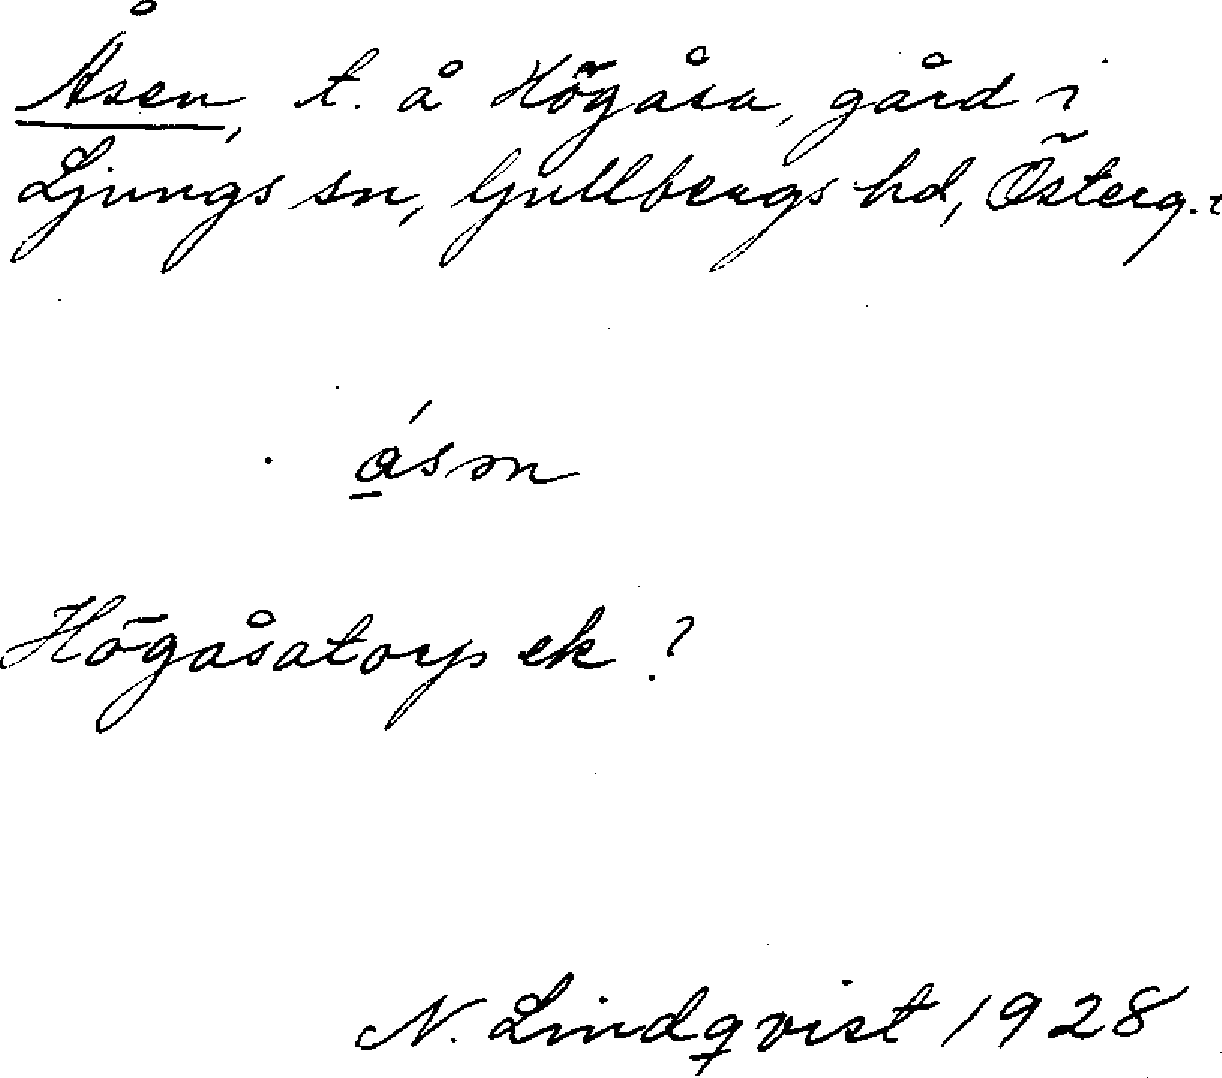 Åsen, t. å Högåsa, gård i
Ljungs sn, Gullbergs hd, Österg.
ásən
Högåsatorp ek ?
N. Lindqvist 1928